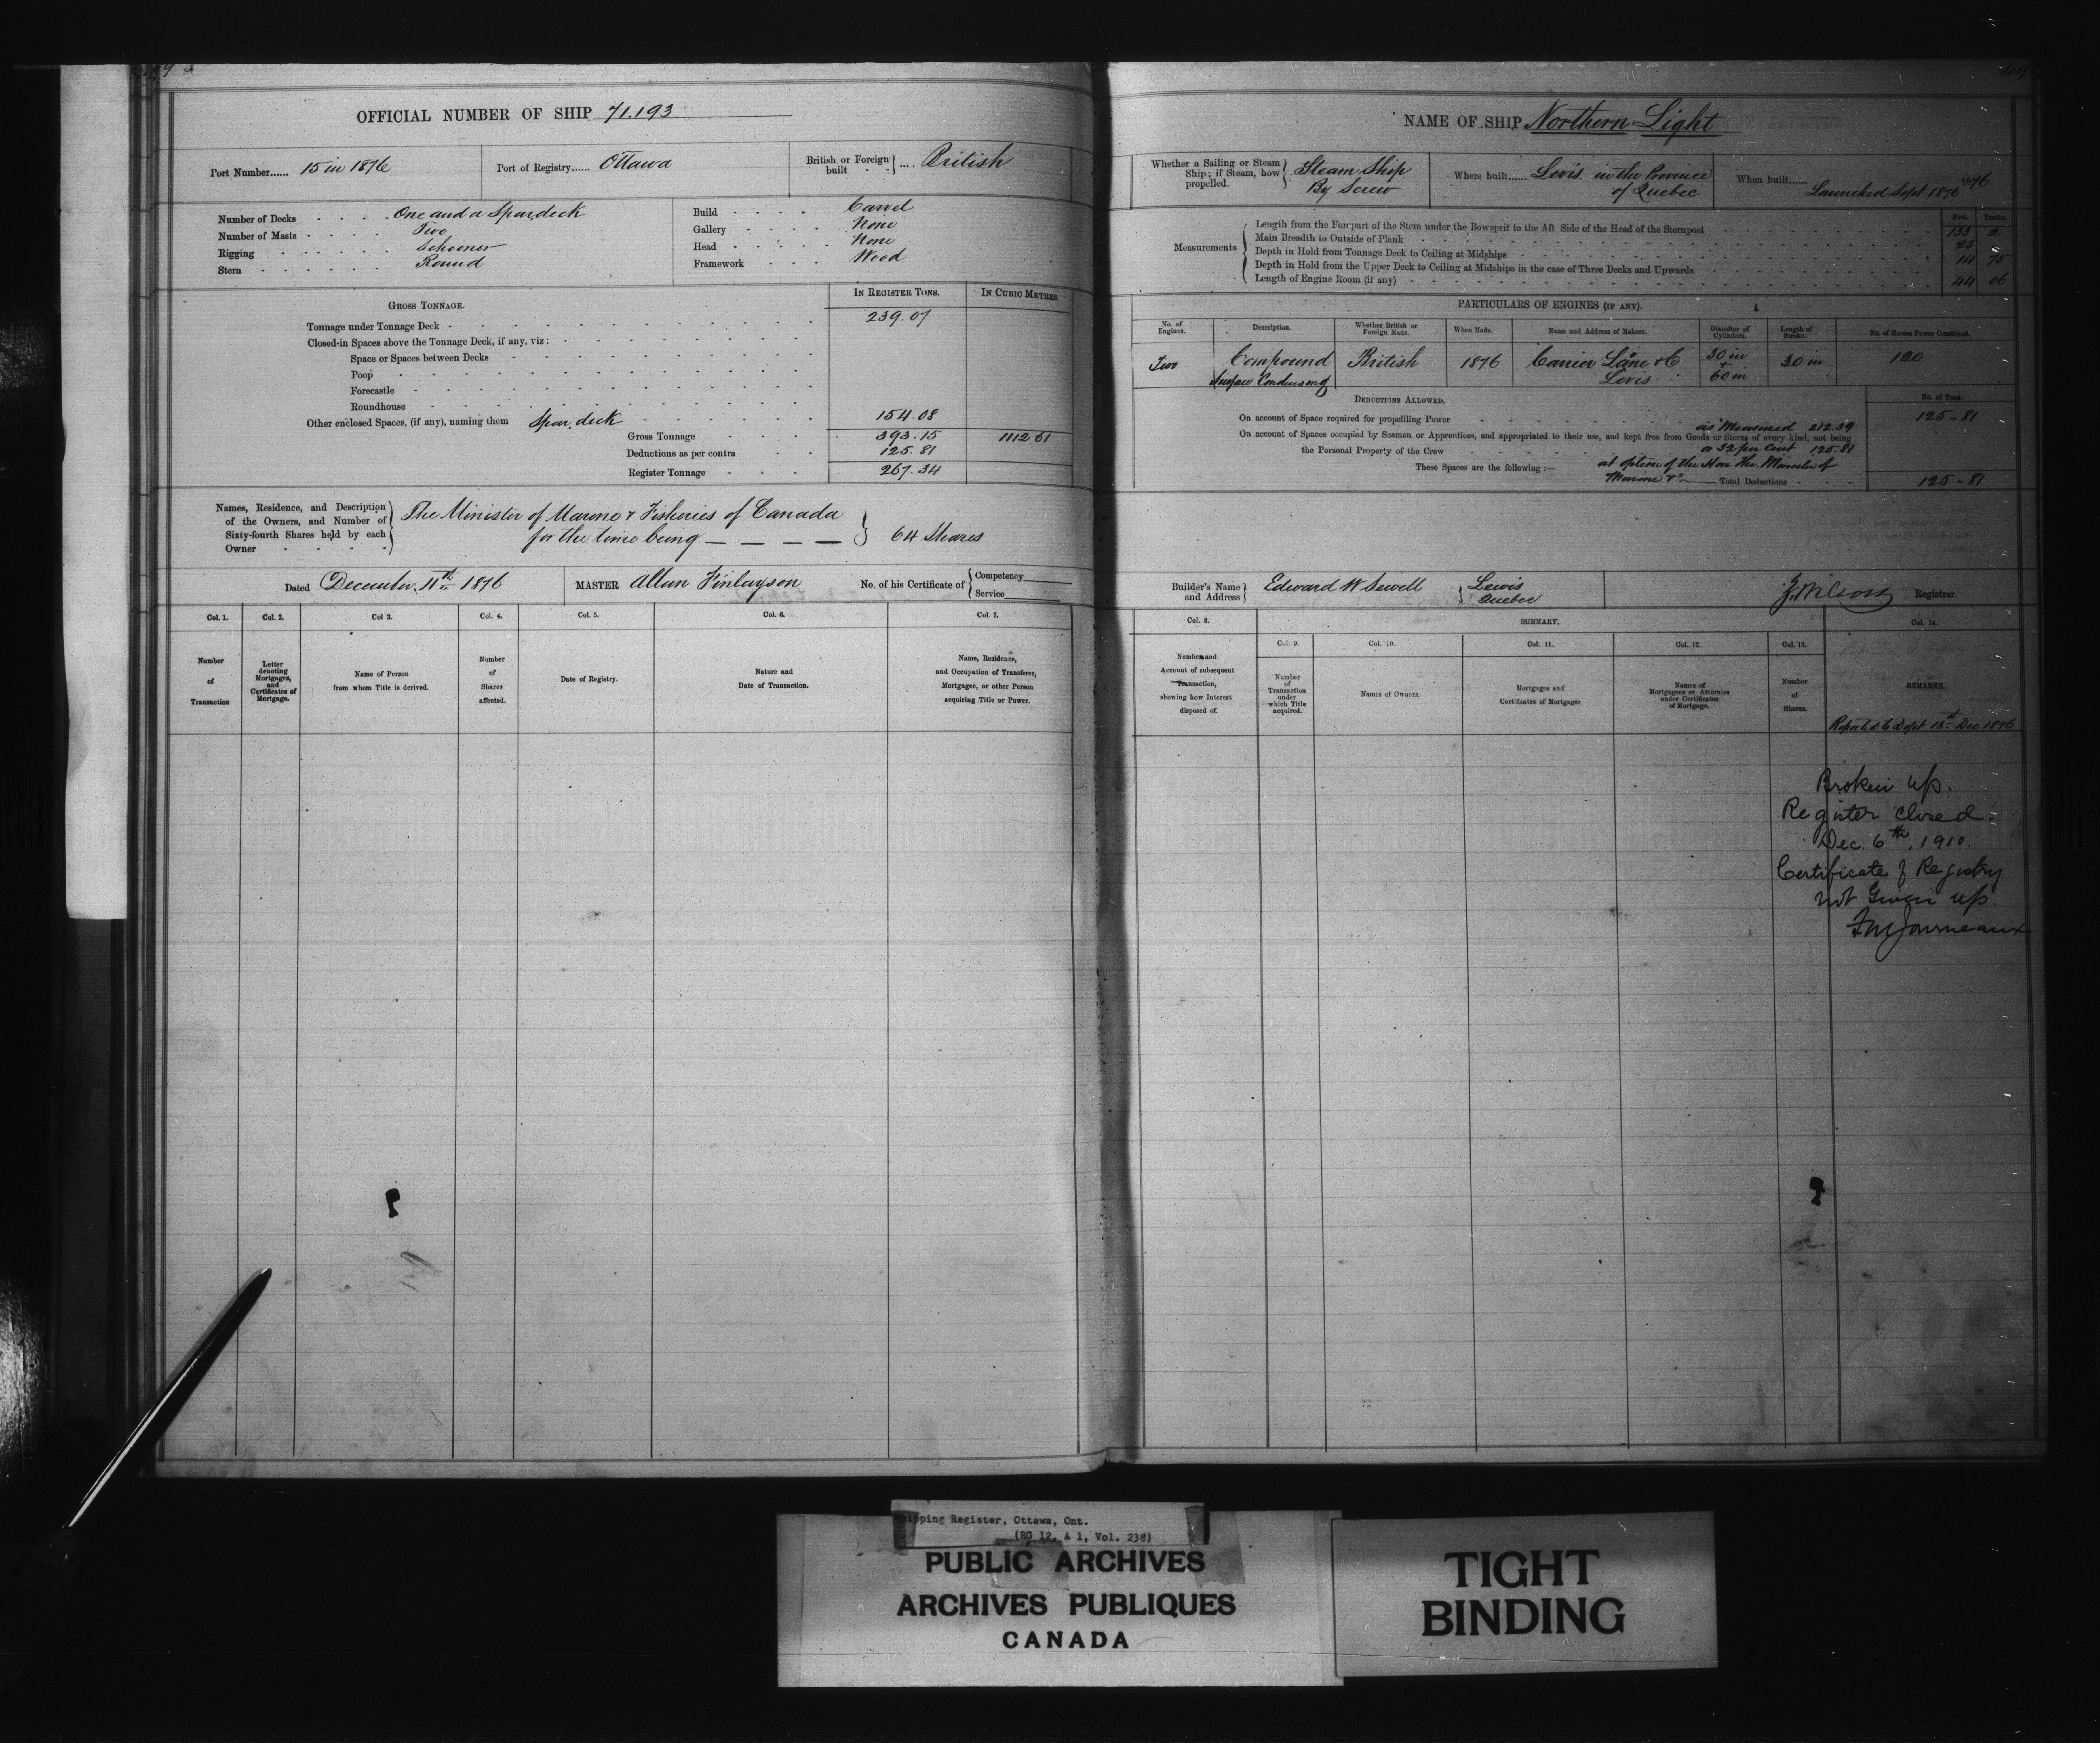 OFFICIAL NUMBER OF SHIP 71.193
Port Number...... 15 in 1876
Port of Registry...... Ottawa
British or Foreign built .... British
Number of Decks One and a Spar deck
Number of Masts Two
Rigging Schooner
Stern Round
Build Carvel
Gallery None
Head None
Framework Wood
GROSS TONNAGE.
IN REGISTER TONS.
IN CUBIC METRES
Tonnage under Tonnage Deck 239.07
Closed-in Spaces above the Tonnage Deck, if any, viz:
Space or Spaces between Decks
Poop
Forecastle
Roundhouse
Other enclosed Spaces, (if any), naming them Spar deck 154.08
Gross Tonnage 393.15 1112.61
Deductions as per contra 125.81
Register Tonnage 267.34
Names, Residence, and Description of the Owners, and Number of Sixty-fourth Shares held by each Owner
The Minister of Marine & Fisheries of Canada
for the time being — — — — } 64 Shares
Dated December 11th 1876
MASTER Allan Finlayson
No. of his Certificate of { Competency
Service
Col. 1.
Col. 2.
Col 3.
Col. 4.
Col. 5.
Col. 6.
Col. 7.
Number of Transaction
Letter denoting Mortgages, and Certificates of Mortgage.
Name of Person from whom Title is derived.
Number of Shares affected.
Date of Registry.
Nature and Date of Transaction.
Name, Residence, and Occupation of Transferee, Mortgagee, or other Person acquiring Title or Power.
NAME OF SHIP Northern Light
Whether a Sailing or Steam Ship; if Steam, how propelled. } Steam Ship
By Screw
Where built...... Levis in the Province
of Quebec
When built...... 1876
Launched Sept 1876
Measurements
Feet. Tenths.
Length from the Forepart of the Stem under the Bowsprit to the Aft Side of the Head of the Sternpost
Main Breadth to Outside of Plank 25
Depth in Hold from Tonnage Deck to Ceiling at Midships
Depth in Hold from the Upper Deck to Ceiling at Midships in the case of Three Decks and Upwards
Length of Engine Room (if any) 44 06
PARTICULARS OF ENGINES (IF ANY).
No. of Engines.
Description.
Whether British or Foreign Made.
When Made.
Name and Address of Makers.
Diameter of Cylinders.
Length of Stroke.
No. of Horses Power Combined.
Two
Compound
Surface Condensing
British
1876
Carrier Laine & C
Levis
30 in
+
60 in
30 in
120
DEDUCTIONS ALLOWED.
No. of Tons.
On account of Space required for propellling Power 125.81
as Measured 212.39
On account of Spaces occupied by Seamen or Apprentices, and appropriated to their use, and kept free from Goods or Stores of every kind, not being
the Personal Property of the Crew
32 per Cent 125.81
These Spaces are the following:—
at option of the Hon the Minister of
Marine &c — Total Deductions 125.81
Builder's Name and Address } Edward W Sewell } Lewis
Quebec
Wilson Registrar.
Col. 8.
SUMMARY.
Col. 9.
Col. 10.
Col. 11.
Col. 12.
Col. 13.
Col. 14.
Number and Account of subsequent Transaction, showing how Interest disposed of.
Number of Transaction under which Title acquired.
Names of Owners.
Mortgages and Certificates of Mortgages
Names of Mortgagees or Attornies under Certificates of Mortgage.
Number of Shares.
REMARKS.
Reported to Dept 13th Dec 1876
Broken up.
Register closed.
Dec. 6th, 1910.
Certificate of Registry
not Given up.
Journeaux
Shipping Register, Ottawa, Ont.
(RG 12, A 1, Vol. 238)
PUBLIC ARCHIVES
ARCHIVES PUBLIQUES
CANADA
TIGHT
BINDING